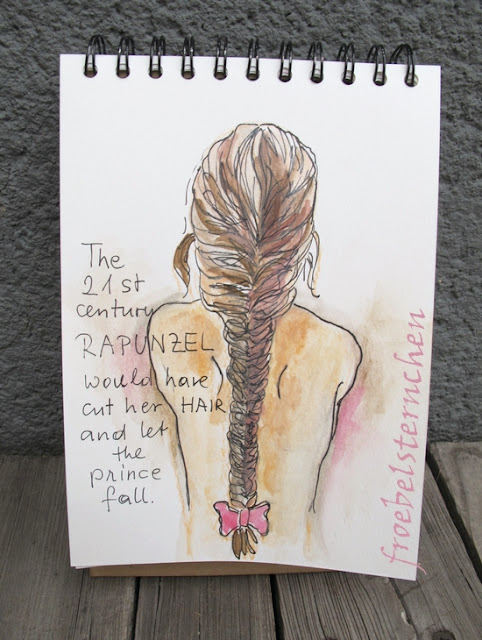 The
21st
century
RAPUNZEL
would have
cut her HAIR
and let
the
prince
fall.
froebelsternchen